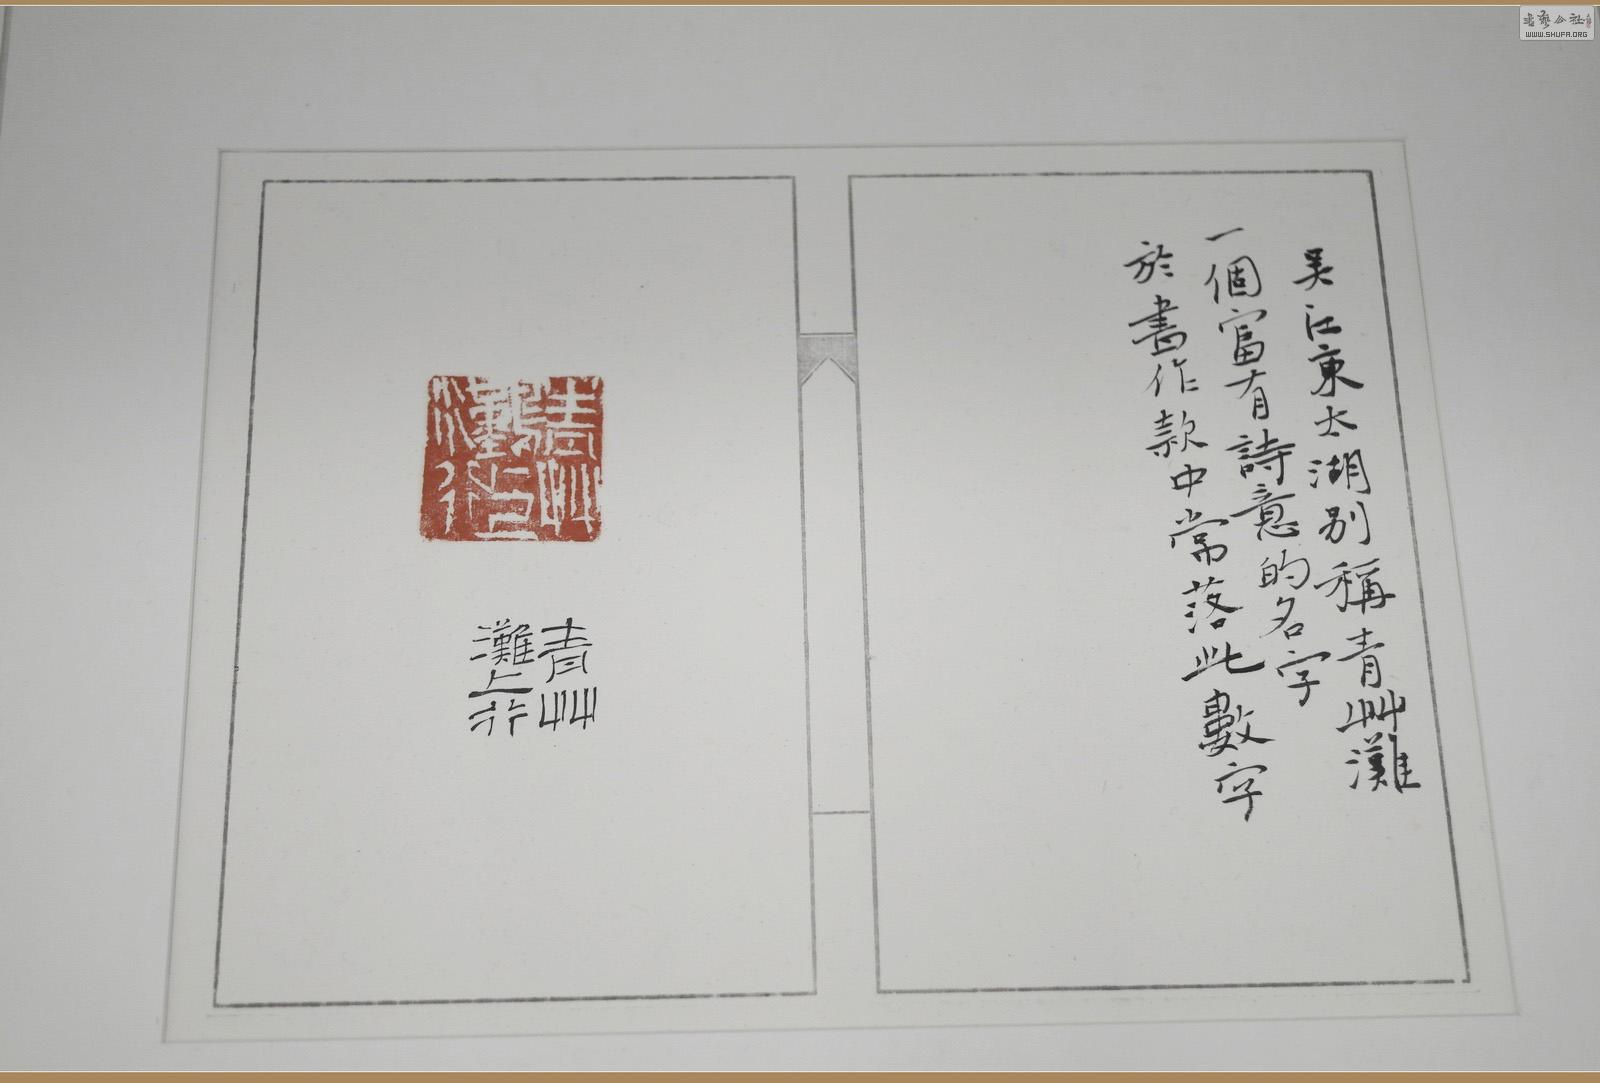 吴江東太湖別稱青艸灘
一個富有詩意的名字
於畫作款中常落此數字
青艸
灘上行
青艸
灘上行
書藝公社
WWW.SHUFA.ORG